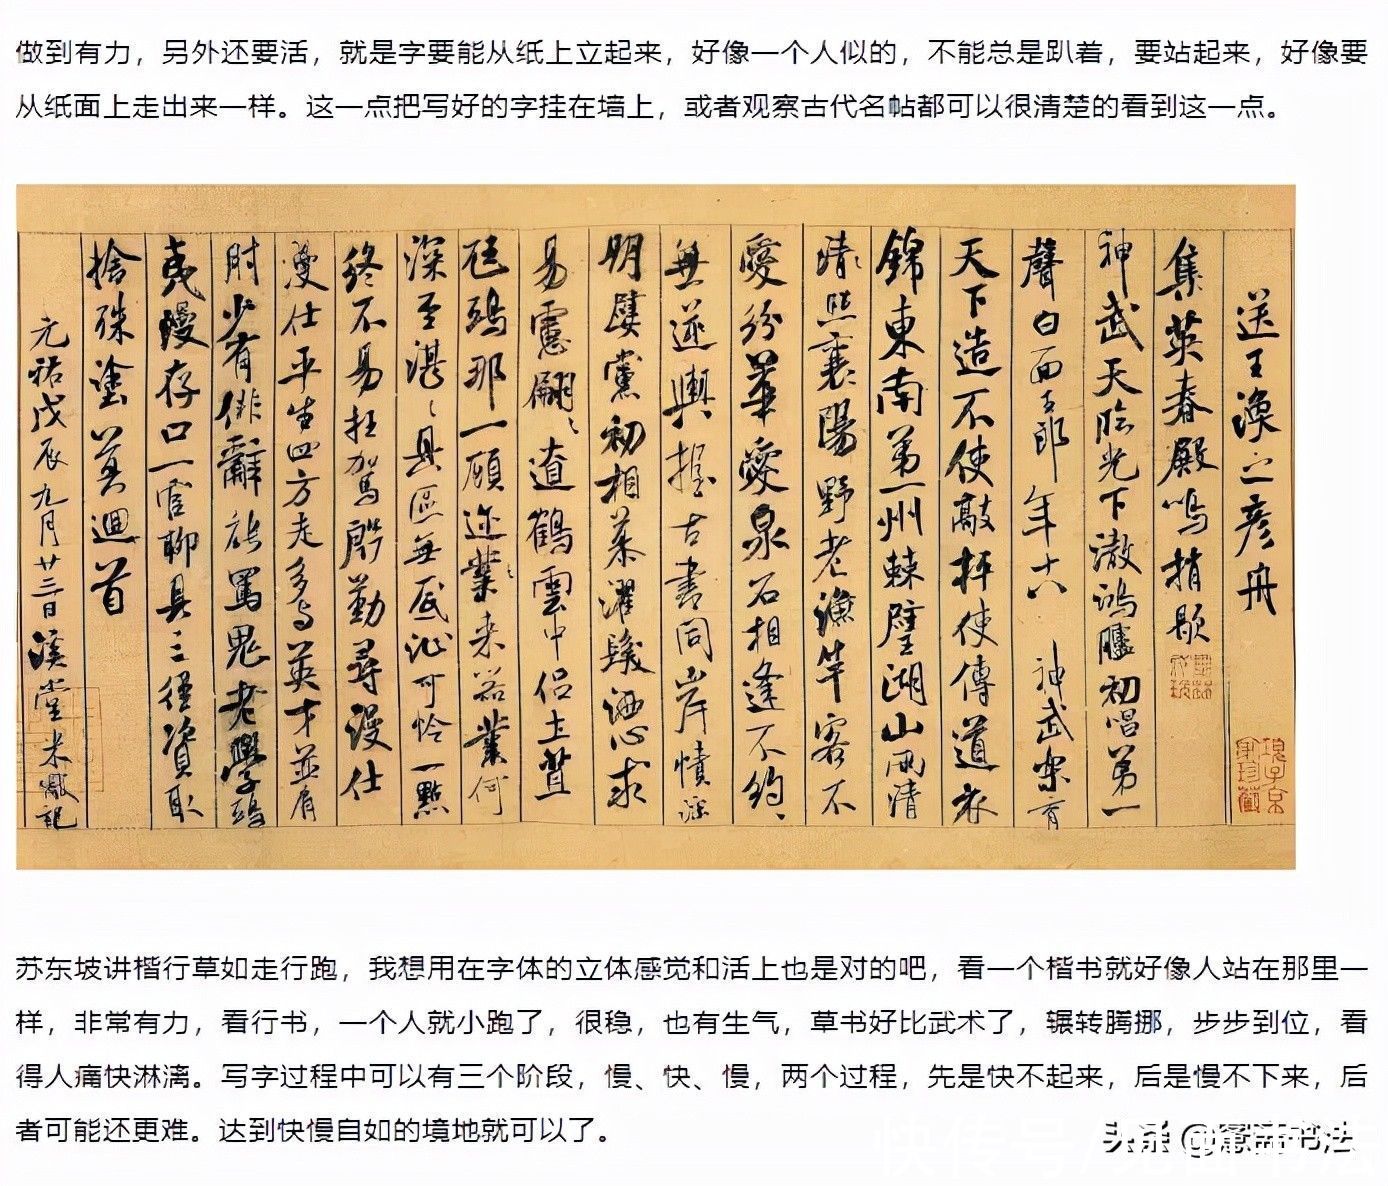 做到有力，另外还要活，就是字要能从纸上立起来，好像一个人似的，不能总是趴着，要站起来，好像要
从纸面上走出来一样。这一点把写好的字挂在墙上，或者观察古代名帖都可以很清楚的看到这一点。
送王渙之彥舟
集英春殿鳴捎歇
神武天臨光下澈鴻臚初唱第一
聲白面王郎年十八神武樂育
天下造不使敲枰使傳道衣
錦東南第一州棘璧湖山兩清
清照襄陽野老漁竿客不
愛紛華愛泉石相逢不約〻
無逆輿握古書同岸幘淫
朋嬖黨初相慕濯髮灑心求
易慮翩〻遼鶴雲中侶土苴
尪鴟那一顧邇業〻來器業何
深至湛〻具區無底沚可憐一點
終不易枉駕殷勤尋漫仕
漫仕平生四方走多與英才並肩
肘少有俳辭能罵鬼老學鴟
夷漫存口一官聊具三徑資取
捨殊塗莫迴首
元祐戊辰九月廿三日溪堂米黻記
苏东坡讲楷行草如走行跑，我想用在字体的立体感觉和活上也是对的吧，看一个楷书就好像人站在那里一
样，非常有力，看行书，一个人就小跑了，很稳，也有生气，草书好比武术了，辗转腾挪，步步到位，看
得人痛快淋漓。写字过程中可以有三个阶段，慢、快、慢，两个过程，先是快不起来，后是慢不下来，后
者可能还更难。达到快慢自如的境地就可以了。